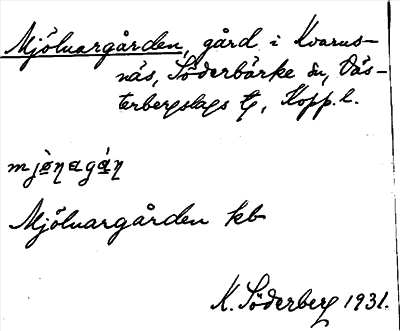 Mjölnargården, gård i Kvarns-
näs, Söderbärke sn, Väs-
terbergslags tg, Kopp. l.
mjö̀ŋagáŋ
Mjölnargården kb
K. Söderberg 1931.